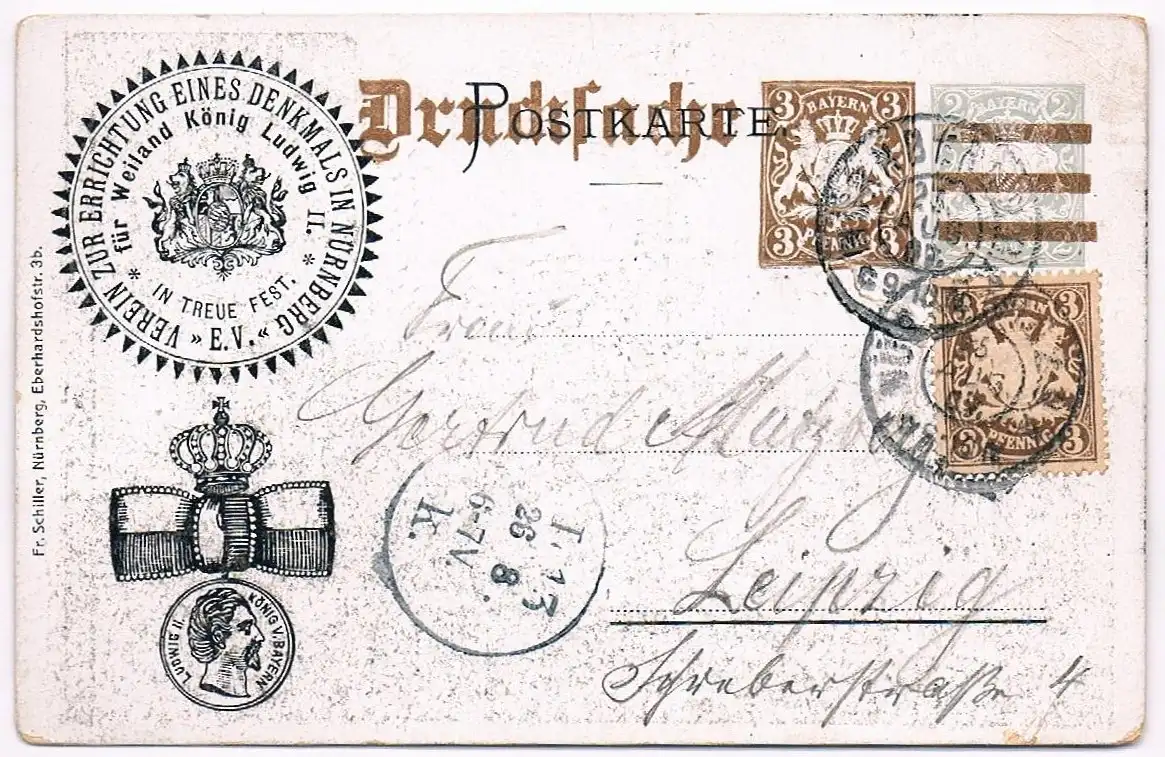 VEREIN ZUR ERRICHTUNG EINES DENKMALS IN NÜRNBERG
» E.V. «
für Weiland König Ludwig II.
* IN TREUE FEST. *
Drucksache
POSTKARTE
3 BAYERN 3
3 PFENNIG 3
2 BAYERN 2
2
3 BAYERN 3
3 PFENNIG 3
Frau
Gertrud
Leipzig
Schreberstraße 4
L. 13
26 8.
6-7V.
K.
LUDWIG II. KÖNIG V. BAYERN
Fr. Schiller, Nürnberg, Eberhardshofstr. 3b.